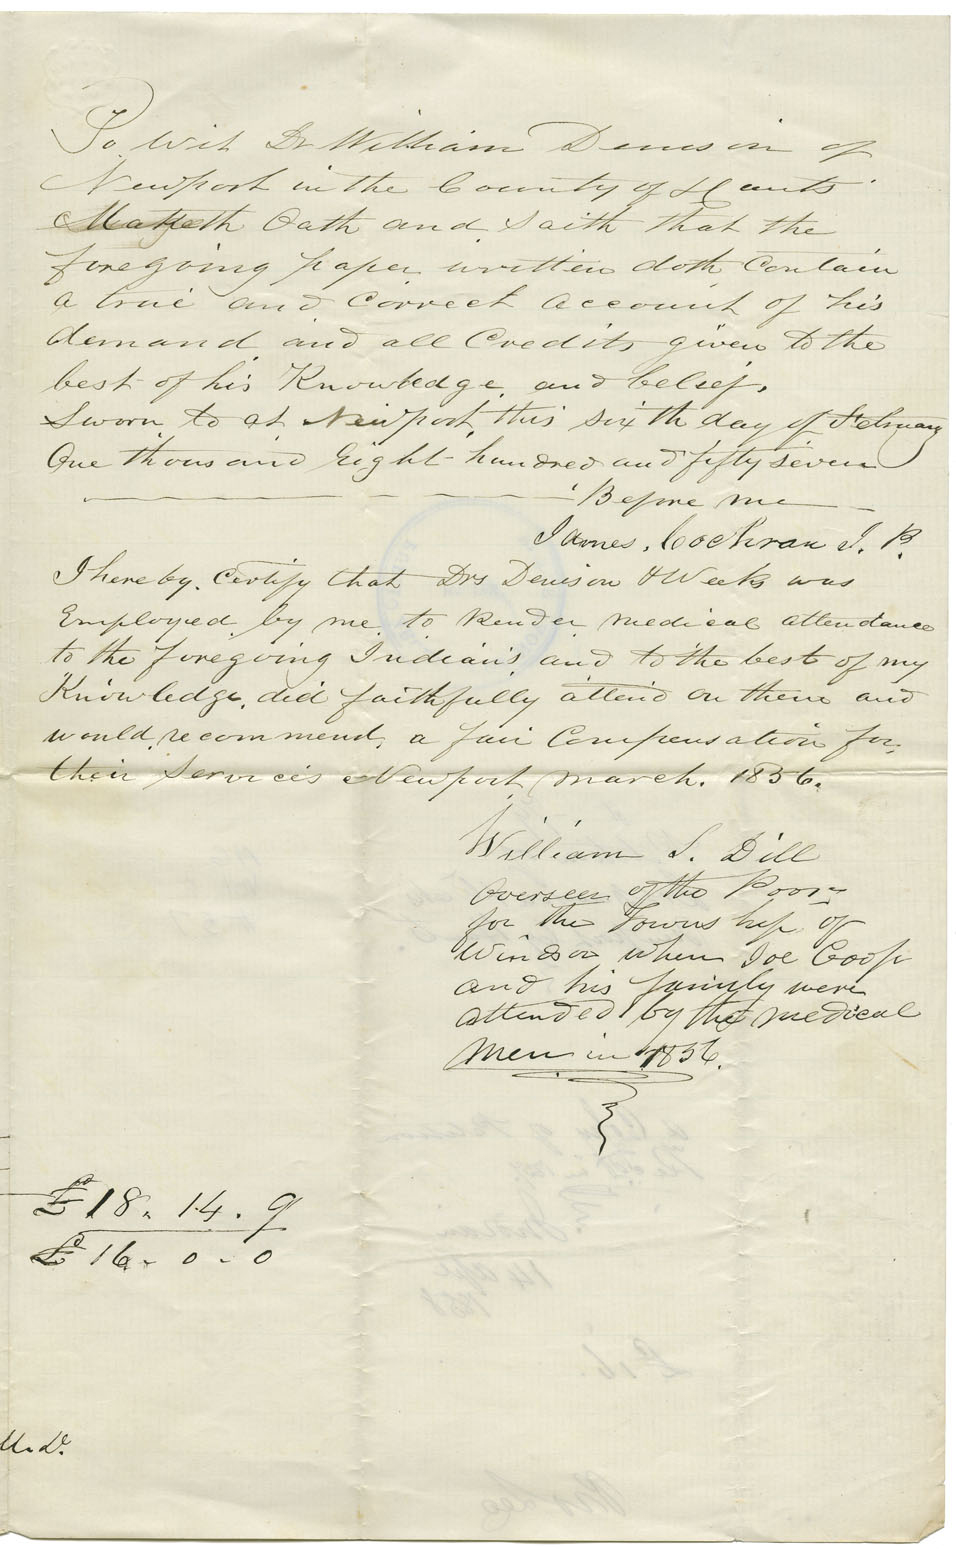 To Wit Dr William Denison of
Newport in the County of Hants
Maketh Oath and Saith that the
foregoing paper written doth Contain
a true and Correct account of his
demand and all Credits given to the
best of his Knowledge and belief.
Sworn to at Newport this sixth day of February
One thousand Eight hundred and fifty seven
Before me
James Cochran J. P.
I hereby Certify that Drs Denison & Weeks was
Employed by me to Render medical attendance
to the foregoing Indians and to the best of my
Knowledge did faithfully attend on them and
would recommend a fair Compensation for
their Services Newport March. 1856.
William S. Dill
Overseer of the Poor
for the Township of
Windsor when Joe Coop
and his family were
attended by the medical
Men in 1856.
£18. 14. 9
£16 - 0 - 0
M. D.